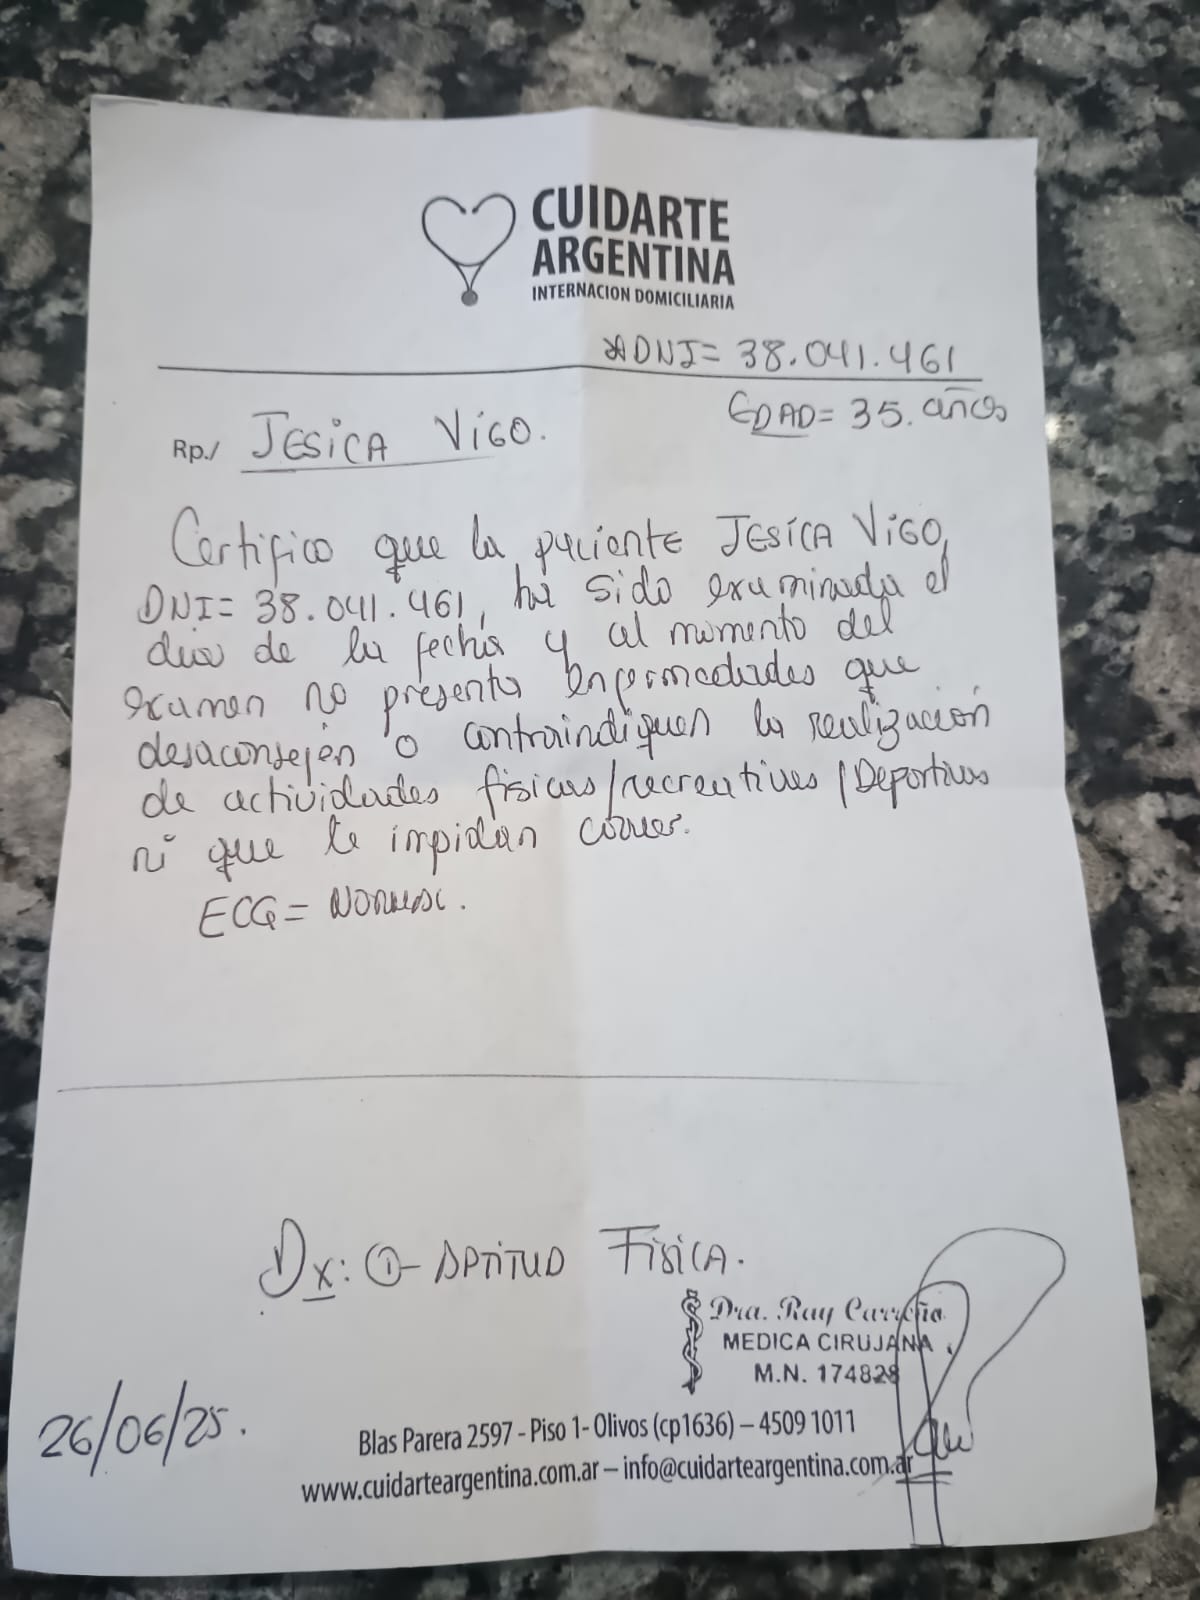 CUIDARTE
ARGENTINA
INTERNACION DOMICILIARIA
DNI= 38.041.461
EDAD= 35. años
Rp./ JESICA VIGO.
Certifico que la paciente JESICA VIGO,
DNI= 38.041.461, ha sido examinada el
dia de la fecha y al momento del
examen no presenta enfermedades que
desaconsejen o contraindiquen la realización
de actividades fisicas/recreativas/Deportivas
ni que le impidan correr.
ECG= NORMAL.
Dx: ①- APTITUD FISICA.
Dra. Ray Carreño
MEDICA CIRUJANA
M.N. 174828
26/06/25.
Blas Parera 2597 - Piso 1- Olivos (cp1636) – 4509 1011
www.cuidarteargentina.com.ar – info@cuidarteargentina.com.ar